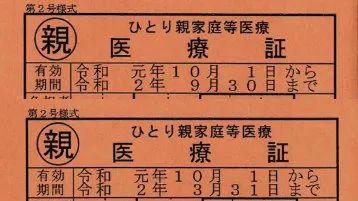 第2号様式
親
ひとり親家庭等医療
医療証
有効期間
令和 元年10月 1日から
令和 2年 9月30日まで
第2号様式
親
ひとり親家庭等医療
医療証
有効期間
令和 元年10月 1日から
令和 2年 3月31日まで